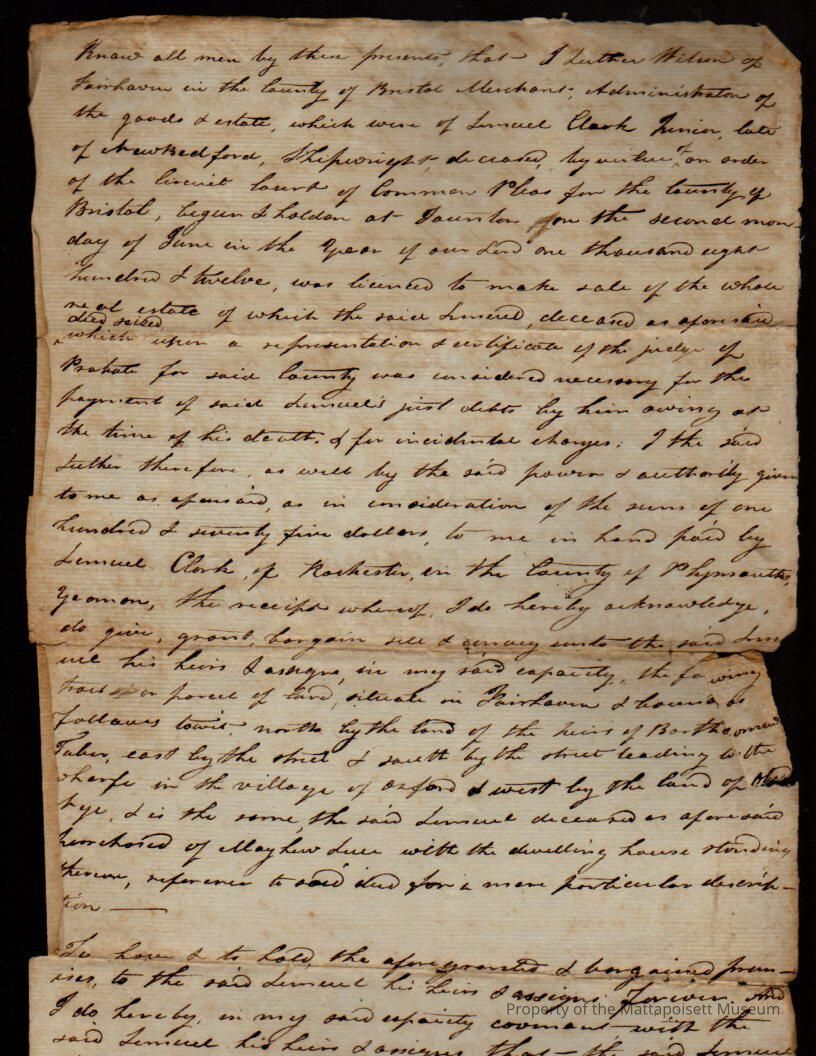 Know all men by these presents, that I Luther Wilson of
Fairhaven in the County of Bristol Merchant, Administrator of
the goods & estate, which were of Lemuel Clark Junior, late
of New Bedford, Shipwright, deceased, by virtue of an order
of the Circuit Court of Common Pleas for the County of
Bristol, begun & holden at Taunton on the second mon-
day of June in the Year of our Lord one thousand eight
hundred & twelve, was licenced to make sale of the whole
real estate of which the said Lemuel, deceased as aforesaid
died seized
which upon a representation & certificate of the judge of
Probate for said County was considered necessary for the
payment of said Lemuel's just debts by him owing at
the time of his death, & for incidental charges: I the said
Luther therefore, as well by the said power & authority given
to me as aforesaid, as in consideration of the sum of one
hundred & seventy five dollars, to me in hand paid by
Lemuel Clark, of Rochester, in the County of Plymouth,
Yeoman, the receipt whereof, I do hereby acknowledge,
do give, grant, bargain sell & convey unto the said Lem
uel his heirs & assigns, in my said capacity, the
tract or parcel of land, situate in Fairhaven & bounded as
follows towit, north by the land of the heirs of Bartholomew
Taber, east by the street & south by the street leading to the
wharfe in the village of Oxford & west by the land of
& is the same, the said Lemuel deceased as aforesaid
purchased of Mayhew Luce with the dwelling house standing
thereon, reference to said deed for a more particular descrip-
tion
To have & to hold, the afore granted & bargained prem-
ises, to the said Lemuel his heirs & assigns forever, And
I do hereby, in my said capacity covenant with the
said Lemuel his heirs & assigns that the said Lemuel
Property of the Mattapoisett Museum